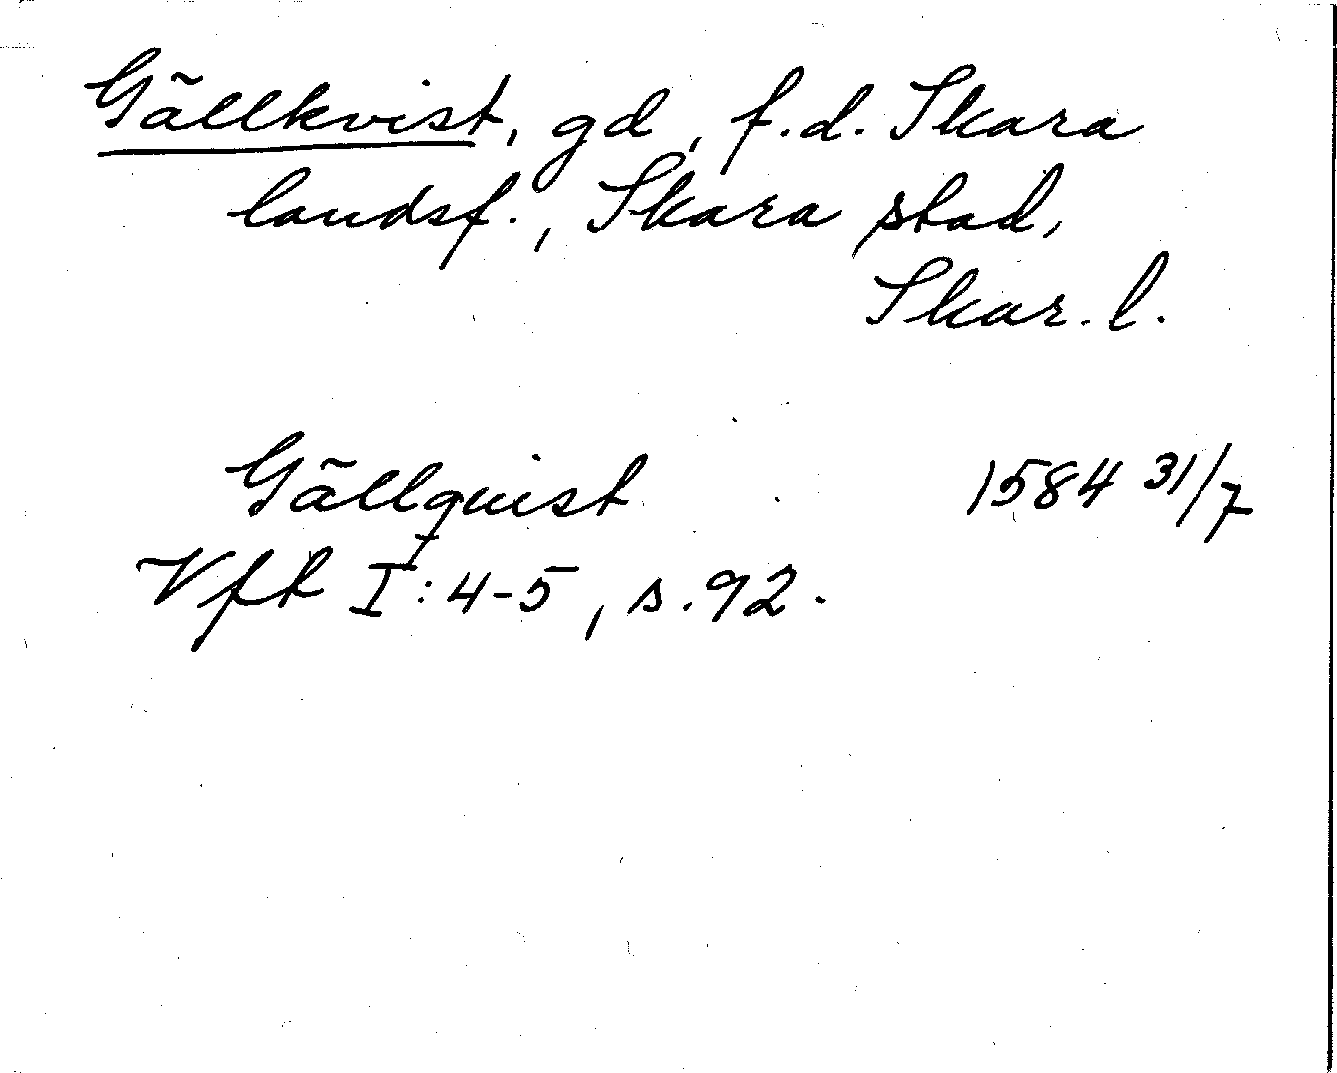 Gällkvist, gd, f.d. Skara
landsf., Skara stad,
Skar. l.
Gällquist 1584 31/7
Vft I:4-5, s.92.